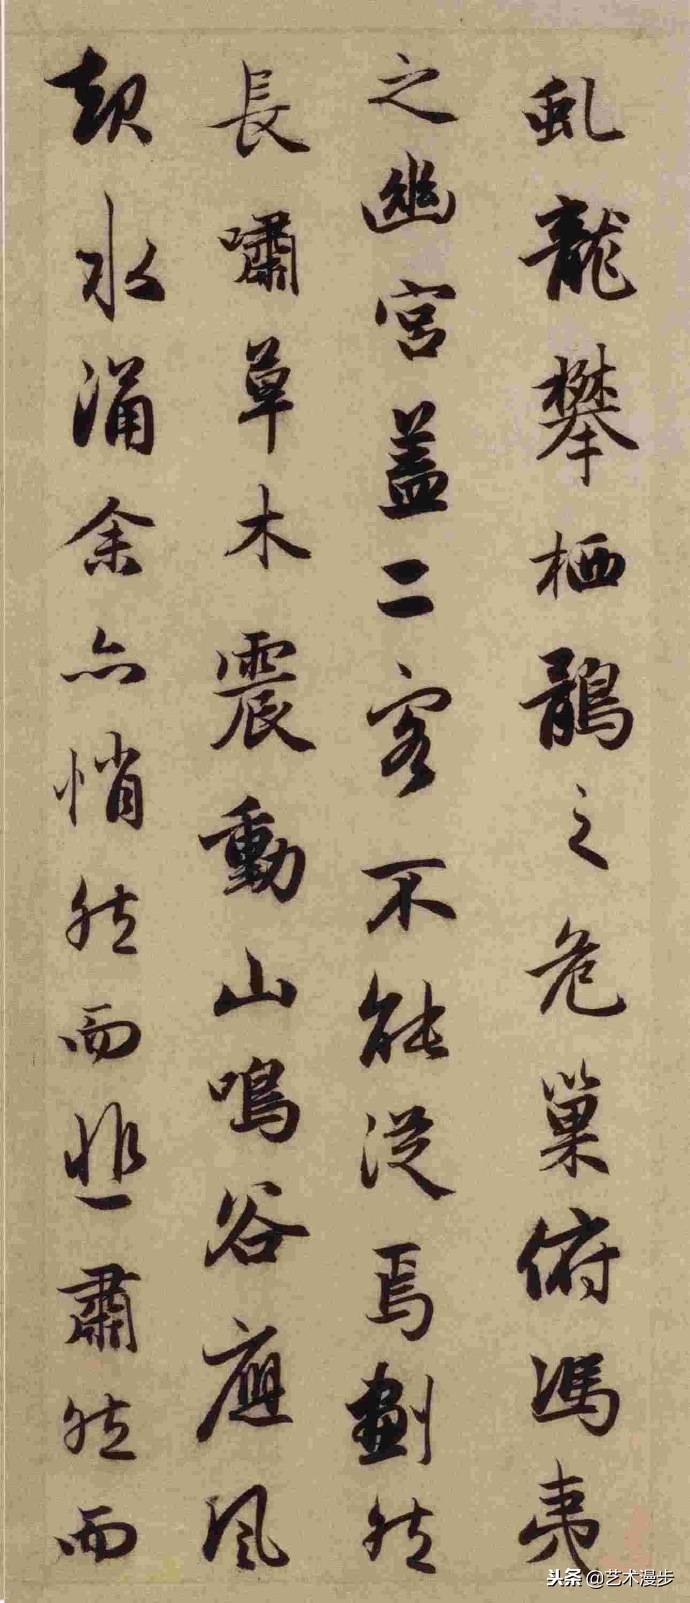 虬龍攀栖鶻之危巢俯馮夷
之幽宮蓋二客不能從焉劃然
長嘯草木震動山鳴谷應風
起水涌余亦悄然而悲肅然而
头条@艺术漫步